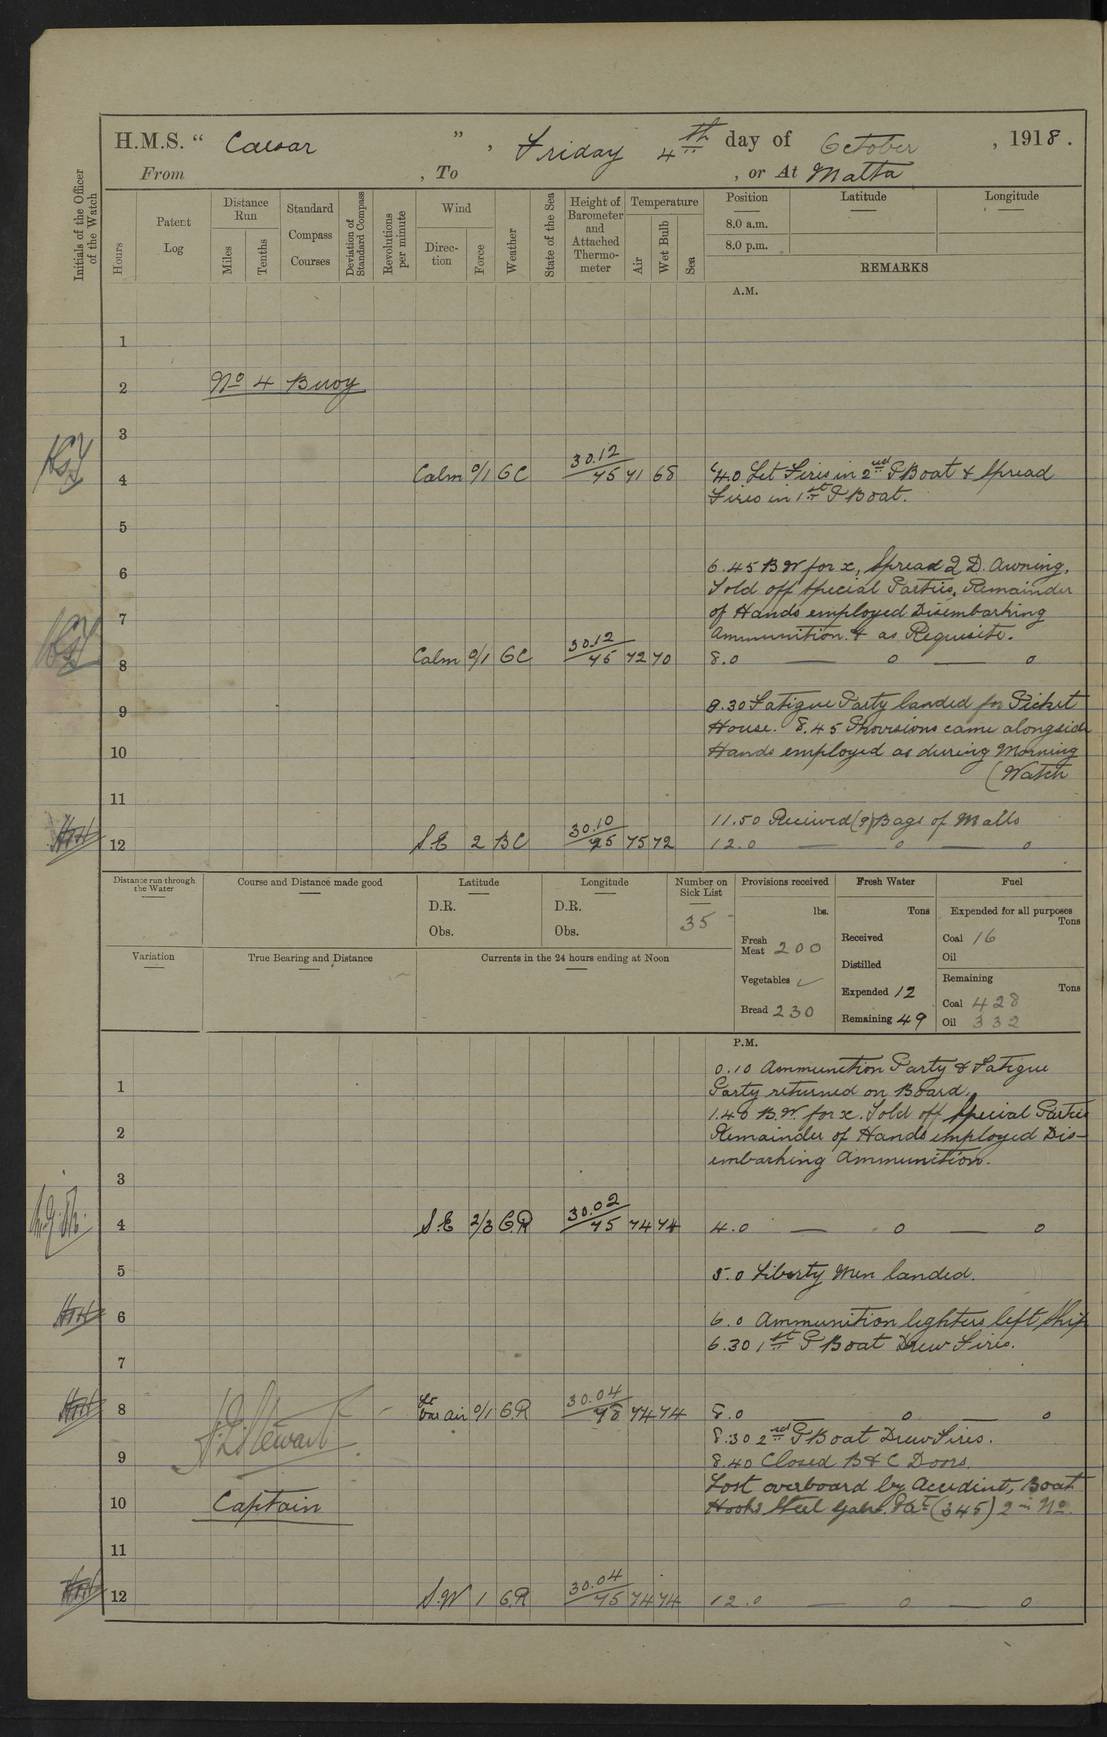 H.M.S. “ Caesar ” , Friday 4th day of October , 1918.
From , To , or At Malta
Initials of the Officer of the Watch
Hours
Patent Log
Distance Run
Miles
Tenths
Standard Compass Courses
Deviation of Standard Compass
Revolutions per minute
Wind
Direction
Force
Weather
State of the Sea
Height of Barometer and Attached Thermometer
Temperature
Air
Wet Bulb
Sea
Position
Latitude
Longitude
8.0 a.m.
8.0 p.m.
REMARKS
A.M.
1
2 No 4 Buoy
3
4 Calm 0/1 GC 30.12/75 71 68 4.0 Let Fires in 2nd P Boat & Spread
Fires in 1st P Boat.
5
6 6.45 B.W. for x, Spread Q.D. Awning.
Told off Special Parties, Remainder
7 of Hands employed Disembarking
Ammunition & as Requisite.
8 Calm 0/1 GC 30.12/75 72 70 8.0 — o — o
9 8.30 Fatigue Party landed for Picket
House. 8.45 Provisions came alongside
10 Hands employed as during Morning
(Watch
11
11.50 Received (9) Bags of Mails
12 S.E 2 BC 30.10/75 75 72 12.0 — o — o
Distance run through the Water
Course and Distance made good
Latitude
D.R.
Obs.
Longitude
D.R.
Obs.
Number on Sick List
35
Provisions received
lbs.
Fresh Meat 200
Vegetables ✓
Bread 230
Fresh Water
Tons
Received
Distilled
Expended 12
Remaining 49
Fuel
Expended for all purposes
Tons
Coal 16
Oil
Remaining
Tons
Coal 428
Oil 332
Variation
True Bearing and Distance
Currents in the 24 hours ending at Noon
P.M.
0.10 Ammunition Party & Fatigue
1 Party returned on Board.
1.40 B.W. for x. Told off Special Parties
2 Remainder of Hands employed Dis-
embarking Ammunition.
3
4 S.E 2/3 G.R 30.02/75 74 74 4.0 — o — o
5 5.0 Liberty Men landed.
6 6.0 Ammunition lighters left Ship
6.30 1st P Boat Drew Fires.
7
8 Lt Var air 0/1 G.R 30.04/78 74 74 8.0 o — o
8.30 2nd P Boat Drew Fires.
9 8.40 Closed B & C Doors.
Lost overboard by Accident, Boat
10 Captain Hooks Steel Galvd. Patt (345) 2 in No.
11
12 S.W 1 G.R 30.04/75 74 74 12.0 — o — o